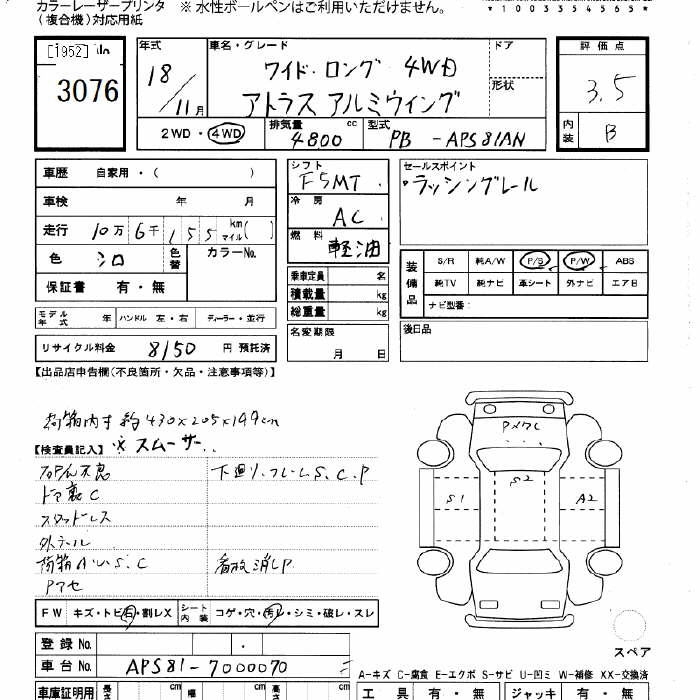 カラーレーザープリンタ ※ 水性ボールペンはご利用いただけません。
(複合機)対応用紙
*1003354565*
[1952]
3076
年式 18/11月
車名・グレード ワイド・ロング 4WD
アトラス アルミウイング
ドア
形状
評価点 3.5
内装 B
2WD・4WD
排気量 4800 cc
型式 PB - APS81AN
車歴 自家用・( )
車検 年 月
走行 10万 6千 155 km マイル( )
色 シロ 色替 カラーNo.
保証書 有・無
シフト F5MT
冷房 AC
燃料 軽油
乗車定員 名
積載量 kg
総重量 kg
名変期限
月 日
セールスポイント
・ラッシングレール
装備品
S/R 純A/W P/S P/W ABS
純TV 純ナビ 革シート 外ナビ エアB
ナビ型番:
後日品
モデル年式 年 ハンドル 左・右 ディーラー・並行
リサイクル料金 8150 円 預託済
【出品店申告欄(不良箇所・欠品・注意事項等)】
荷箱内寸 約430×205×199cm
【検査員記入】 ※スムーサー
下廻り、フレームS.C.P
ドア裏C
スタッドレス
外テール
荷箱A.U.S.C
看板消しP
Pアセ
FW キズ・トビ石・割レX シート内装 コゲ・穴・汚レ・シミ・破レ・スレ
登録No.
車台No. APS81-7000070
車庫証明用 長さ cm 幅 cm 高さ cm
S1
S2
A2
スペア
A-キズ C-腐食 E-エクボ S-サビ U-凹ミ W-補修 XX-交換済
工具 有・無 ジャッキ 有・無